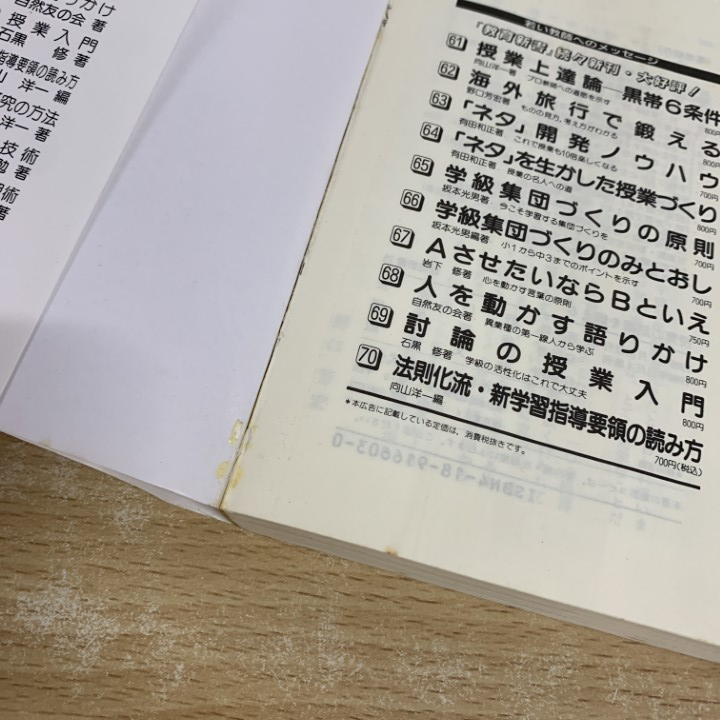 りかけ
自然友の会 著
授業入門
石黒 修 著
指導要領の読み方
山 洋一 編
究の方法
洋一 著
技術
勉 著
術
著
若い教師へのメッセージ
『教育新書』続々新刊・大好評！
61 授業上達論―黒帯6条件
向山洋一著 プロ教師への道筋を示す 800円
62 海外旅行で鍛える
野口芳宏著 ものの見方、考え方がわかる 800円
63 「ネタ」開発ノウハウ
有田和正著 これで授業も10倍楽しくなる 700円
64 「ネタ」を生かした授業づくり
有田和正著 授業の名人への道 800円
65 学級集団づくりの原則
坂本光男著 今こそ学習する集団づくりを 700円
66 学級集団づくりのみとおし
坂本光男編著 小1から中3までのポイントを示す 700円
67 AさせたいならBといえ
岩下 修著 心を動かす言葉の原則 750円
68 人を動かす語りかけ
自然友の会著 異業種の第一線人から学ぶ 800円
69 討論の授業入門
石黒 修著 学級の活性化はこれで大丈夫 800円
70 法則化流・新学習指導要領の読み方
向山洋一編 700円(税込)
*本広告に記載している定価は、消費税抜きです。
ISBN4-18-916603-0